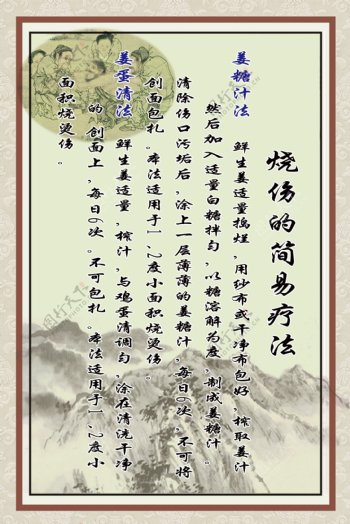 烧伤的简易疗法
姜糖汁法 鲜生姜适量捣烂,用纱布或干净布包好,榨取姜汁
然后加入适量白糖拌匀,以糖溶解为度,制成姜糖汁。
清除伤口污垢后,涂上一层薄薄的姜糖汁,每日6次,不可将
创面包扎。本法适用于1、2度小面积烧烫伤。
姜蛋清法 鲜生姜适量,榨汁,与鸡蛋清调匀,涂在清洗干净
的创面上,每日6次。不可包扎。本法适用于1、2度小
面积烧烫伤。